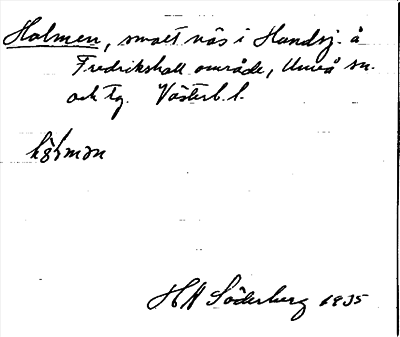 Holmen, smalt näs i Handsj. å
Fredrikshall område, Umeå sn.
och tg. Västerb. l.
hólmǝn
H H Söderberg 1935